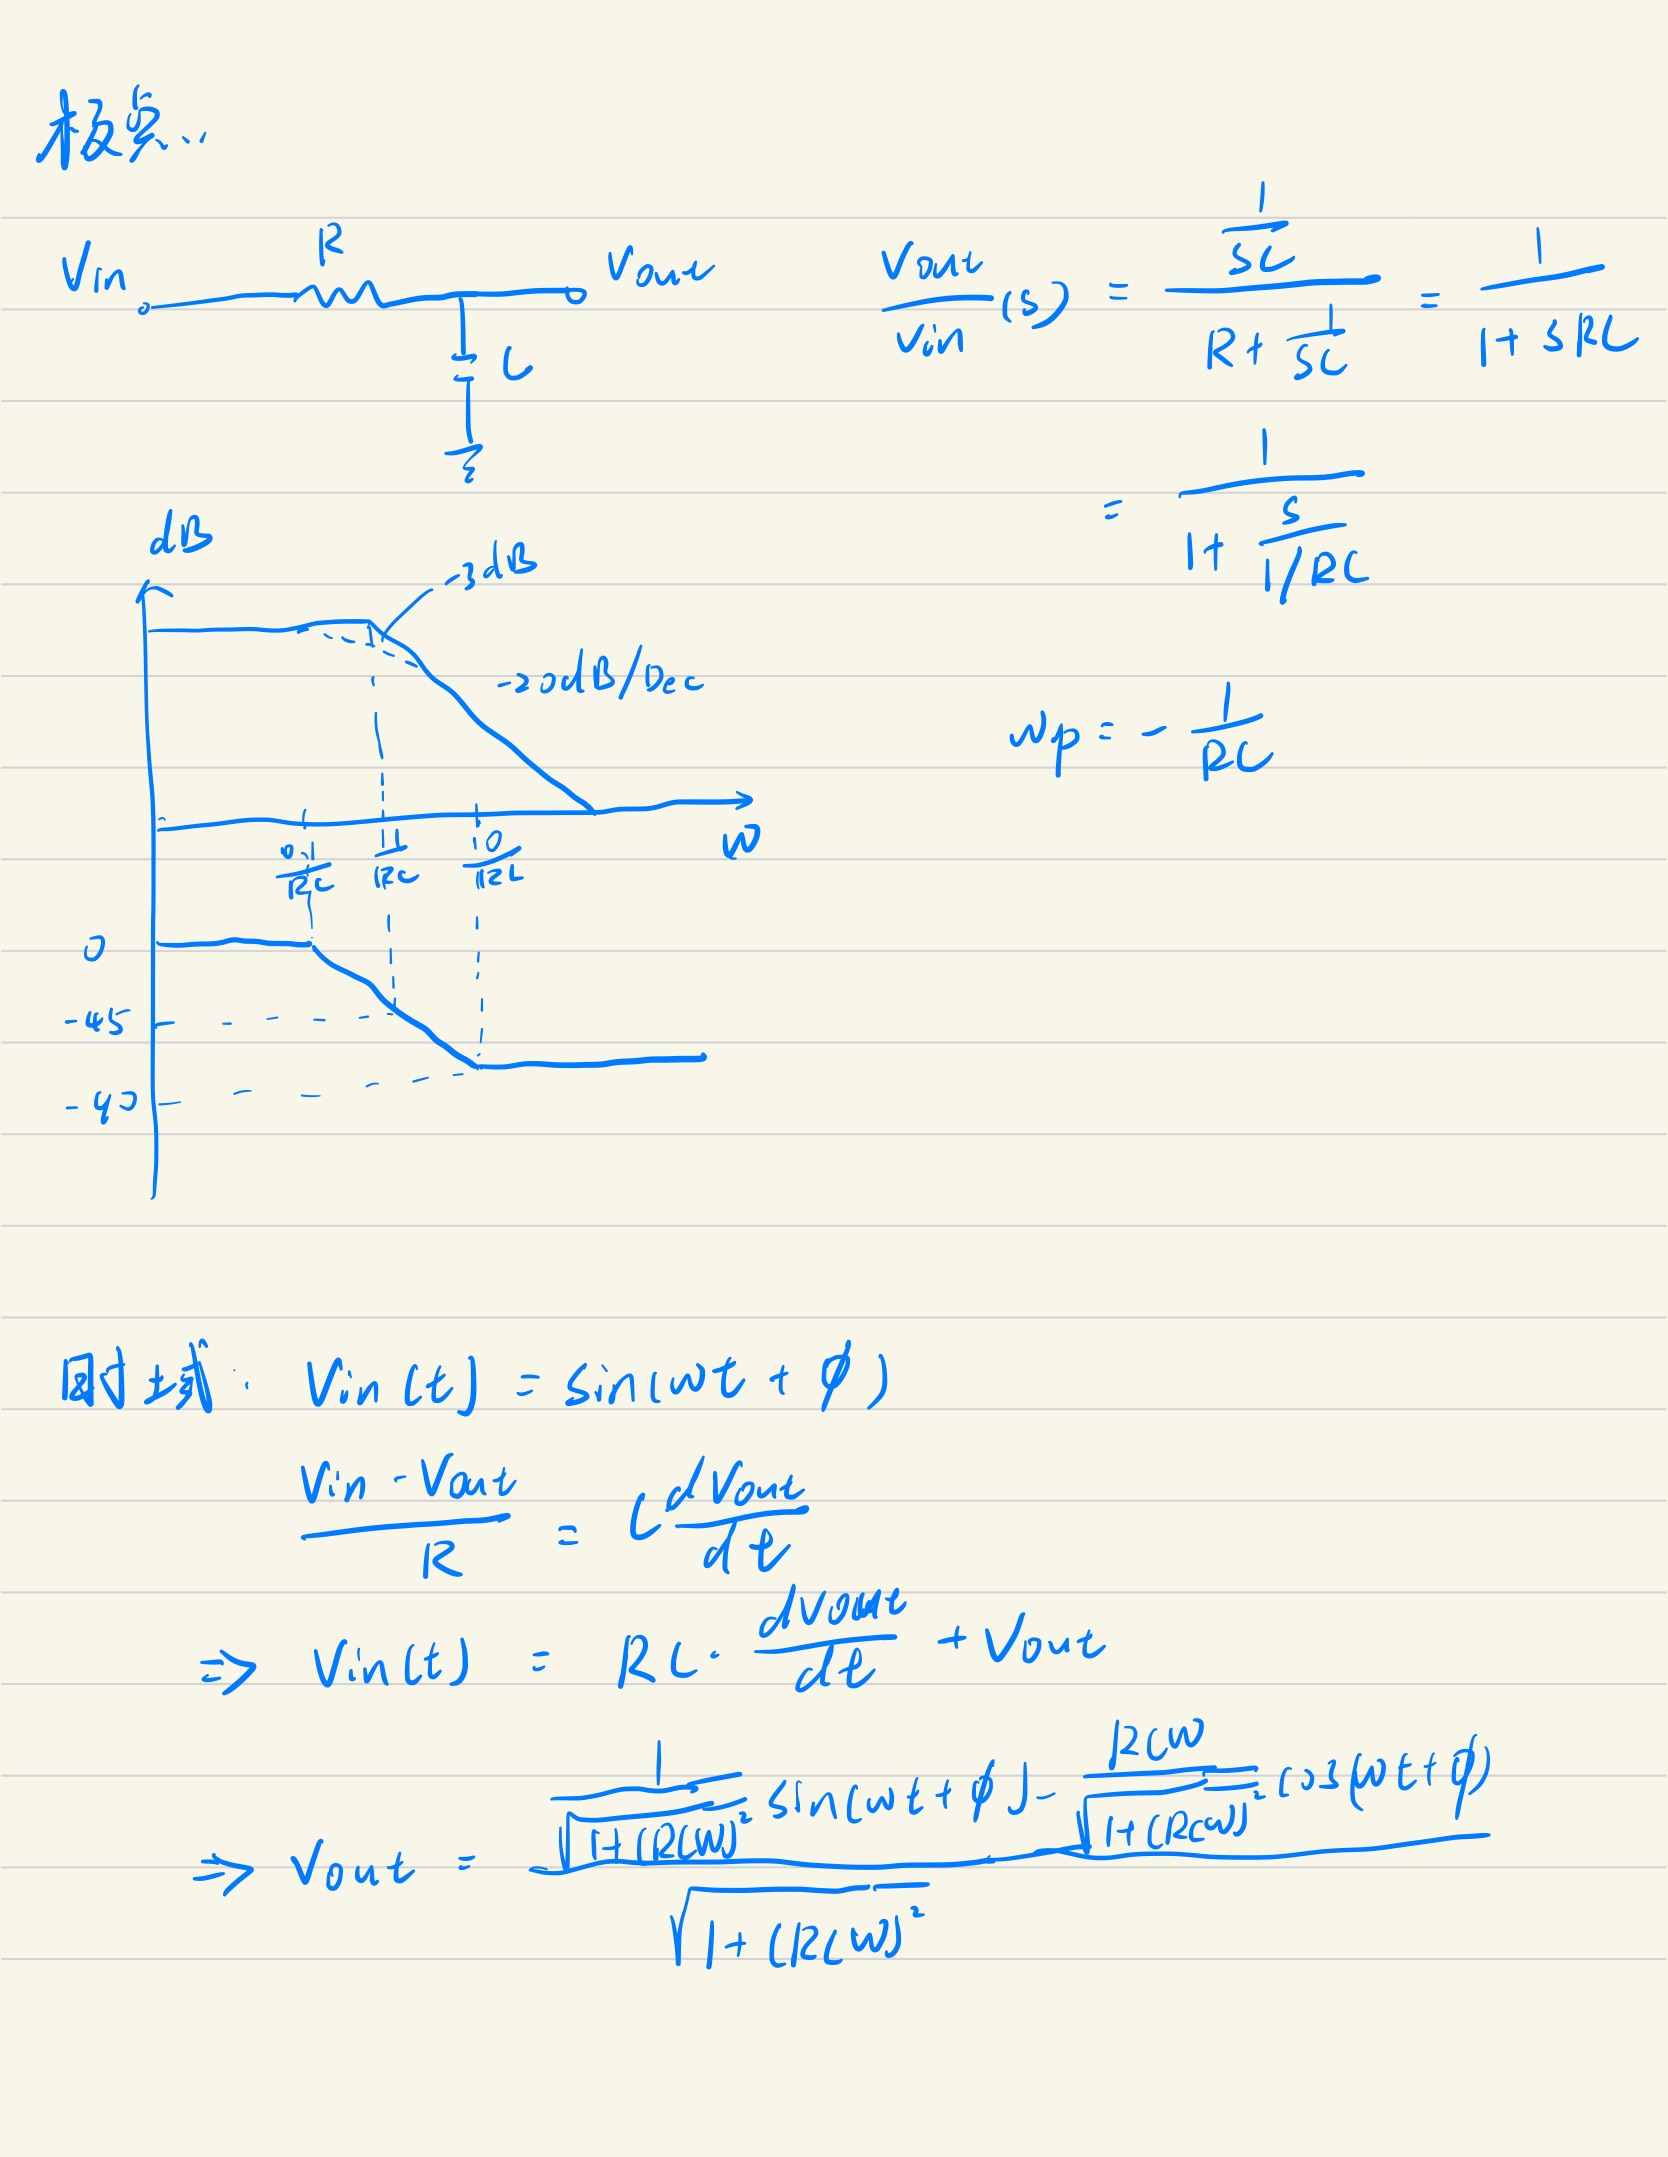 极点..
Vin R Vout
C
Vout/Vin (s) = (1/SC)/(R + 1/SC) = 1/(1 + SRC)
= 1/(1 + S/(1/RC))
dB
-3dB
-20dB/Dec
wp = - 1/RC
0.1/RC 1/RC 10/RC w
0
-45
-90
时域: Vin(t) = sin(wt + φ)
(Vin - Vout)/R = C dVout/dt
=> Vin(t) = RC · dVout/dt + Vout
=> Vout = (1/√(1+(RCW)²) sin(wt+φ) - RCW/√(1+(RCW)²) cos(wt+φ))/√(1+(RCW)²)